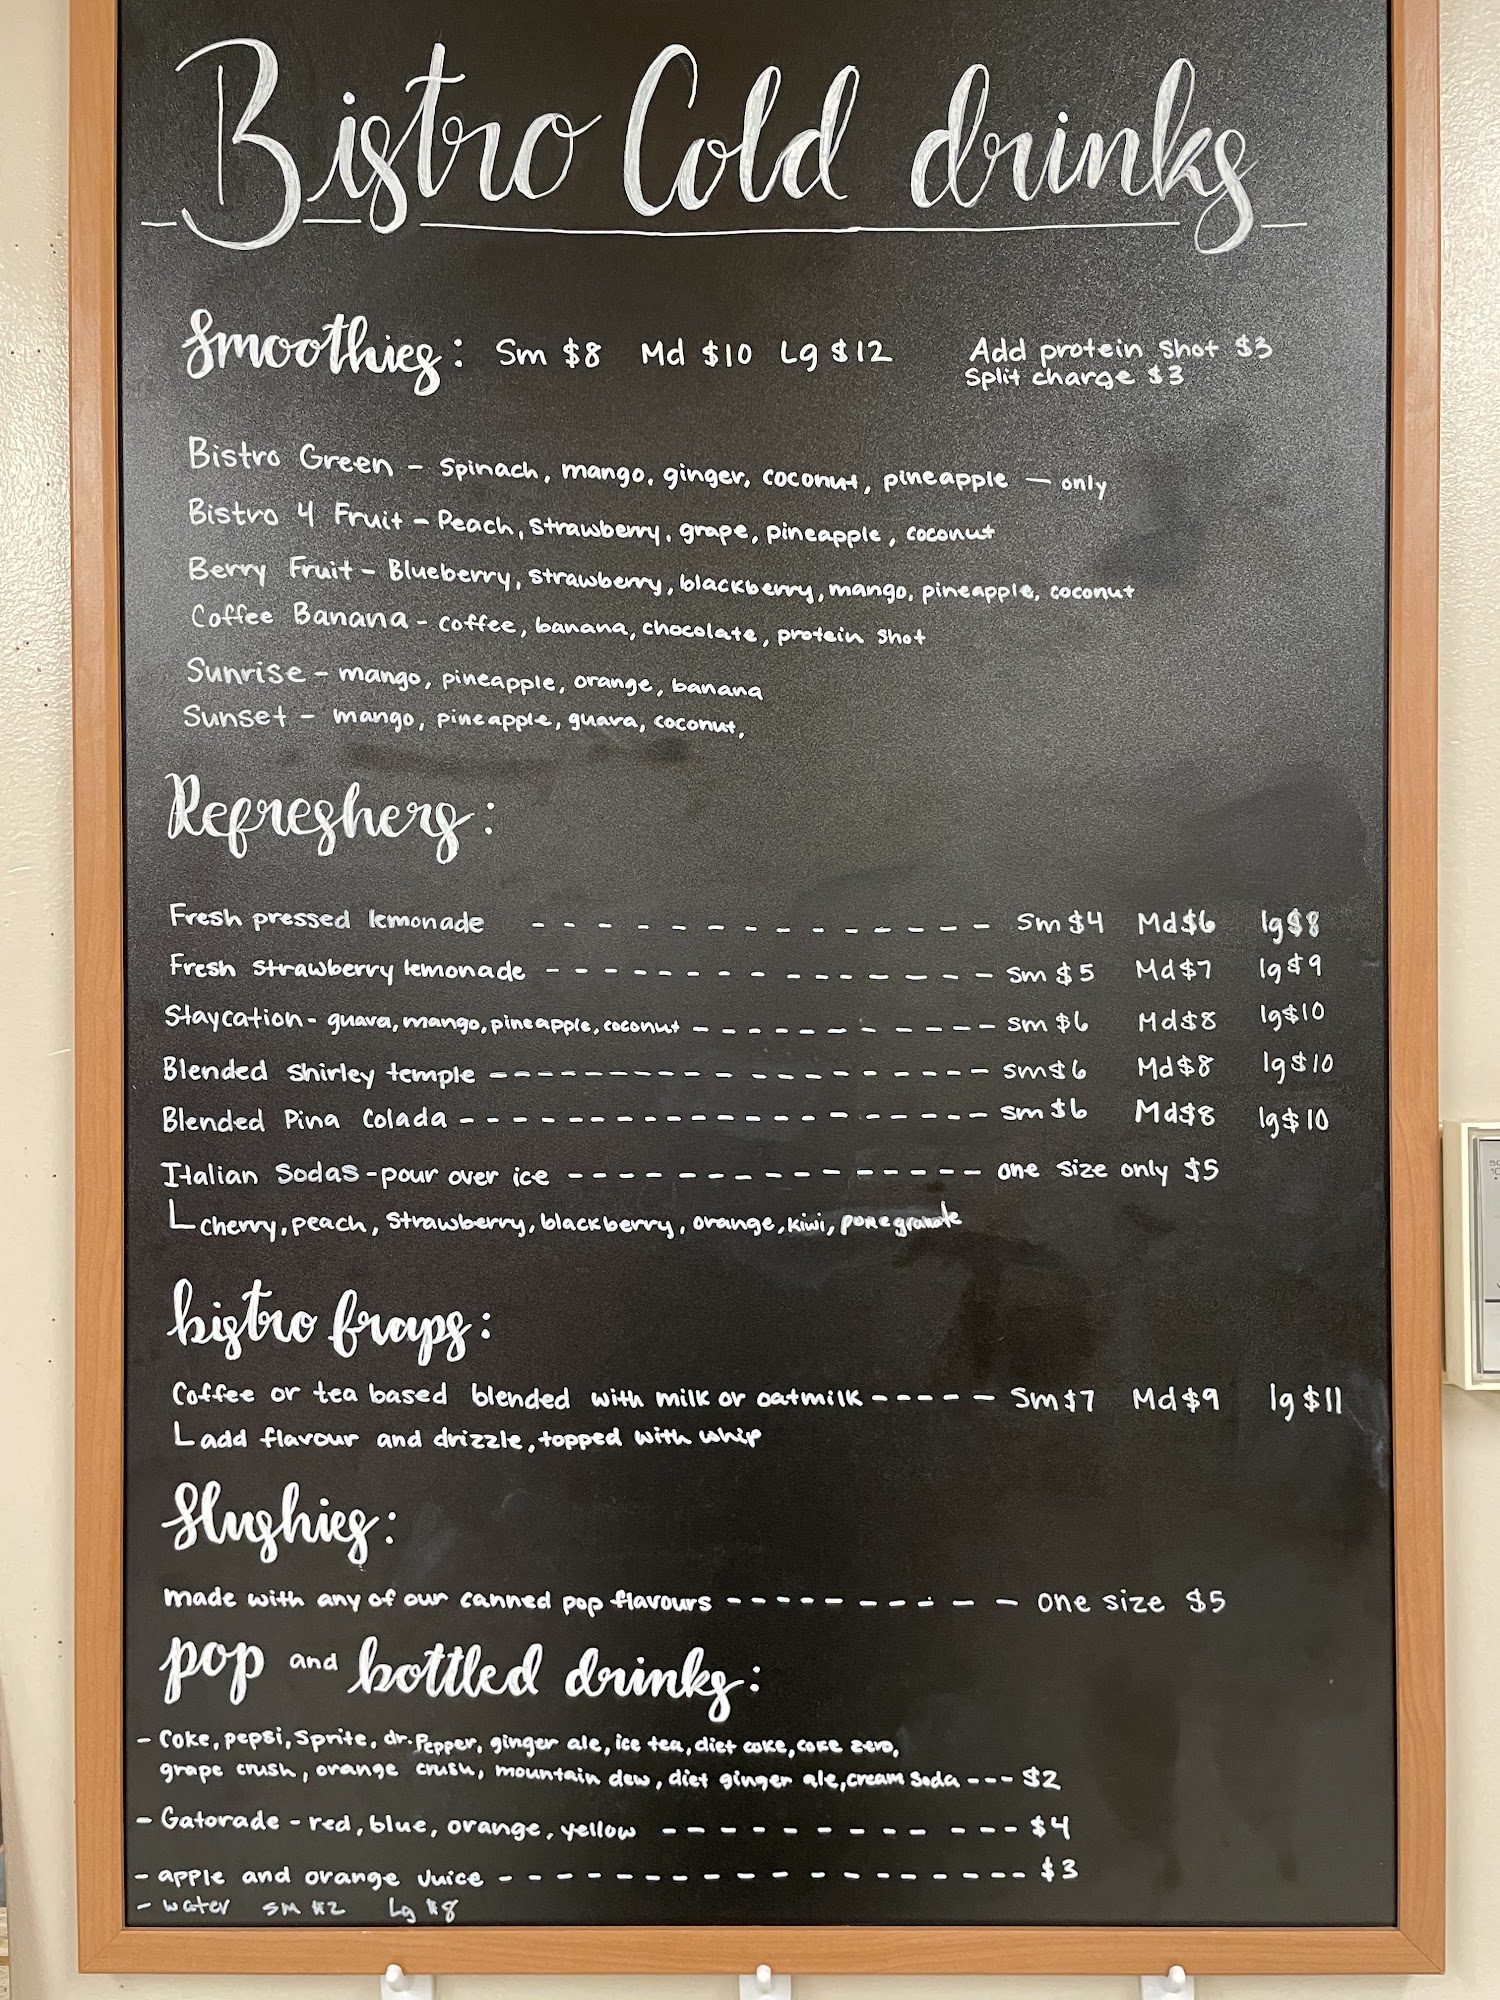 Bistro Cold drinks
Smoothies: Sm $8 Md $10 Lg $12 Add protein shot $3
Split charge $3
Bistro Green - Spinach, mango, ginger, coconut, pineapple - only
Bistro 4 Fruit - Peach, strawberry, grape, pineapple, coconut
Berry Fruit - Blueberry, strawberry, blackberry, mango, pineapple, coconut
Coffee Banana - coffee, banana, chocolate, protein shot
Sunrise - mango, pineapple, orange, banana
Sunset - mango, pineapple, guava, coconut,
Refreshers:
Fresh pressed lemonade - - - - - - - - - - - - - - Sm $4 Md $6 lg $8
Fresh strawberry lemonade - - - - - - - - - - - - - - - - Sm $5 Md $7 lg $9
Staycation - guava, mango, pineapple, coconut - - - - - - - - - - - - Sm $6 Md $8 lg $10
Blended Shirley temple - - - - - - - - - - - - - - - - - - - Sm $6 Md $8 lg $10
Blended Pina Colada - - - - - - - - - - - - - - - - - - - Sm $6 Md $8 lg $10
Italian Sodas - pour over ice - - - - - - - - - - - - - - - one size only $5
cherry, peach, strawberry, blackberry, orange, kiwi, pomegranate
bistro fraps:
Coffee or tea based blended with milk or oatmilk - - - - - Sm $7 Md $9 lg $11
add flavour and drizzle, topped with whip
Slushies:
made with any of our canned pop flavours - - - - - - - - - - one size $5
pop and bottled drinks:
- Coke, pepsi, Sprite, dr. Pepper, ginger ale, ice tea, diet coke, coke zero,
grape crush, orange crush, mountain dew, diet ginger ale, cream soda - - - $2
- Gatorade - red, blue, orange, yellow - - - - - - - - - - - - $4
- apple and orange Juice - - - - - - - - - - - - - - - - - - $3
- water Sm $2 Lg $8